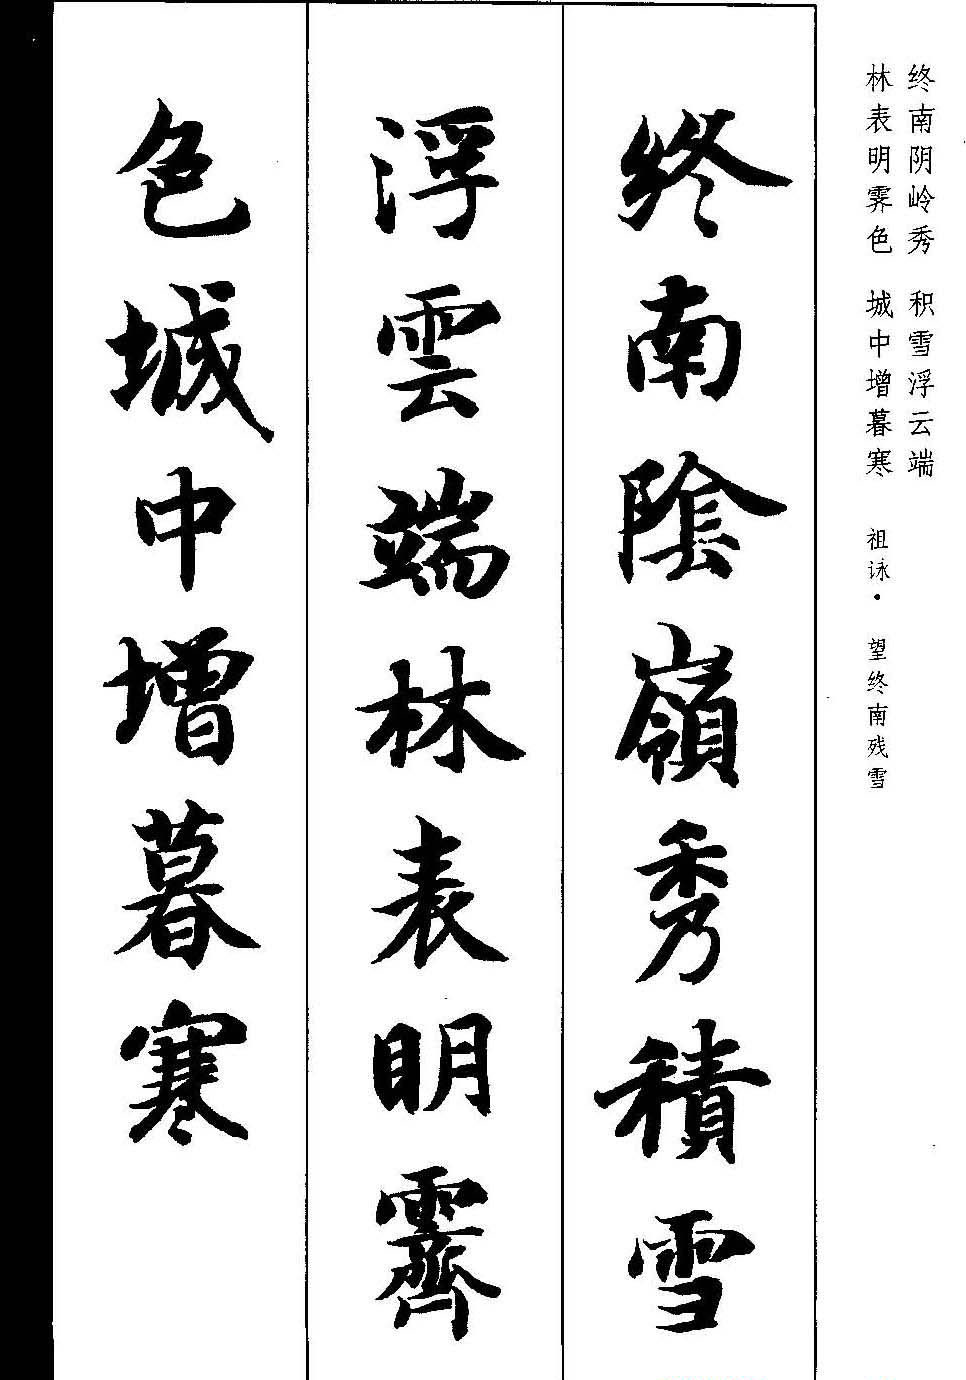 终南阴岭秀 积雪浮云端
林表明霁色 城中增暮寒 祖详·望终南残雪
終南陰嶺秀積雪
浮雲端林表明霽
色城中增暮寒